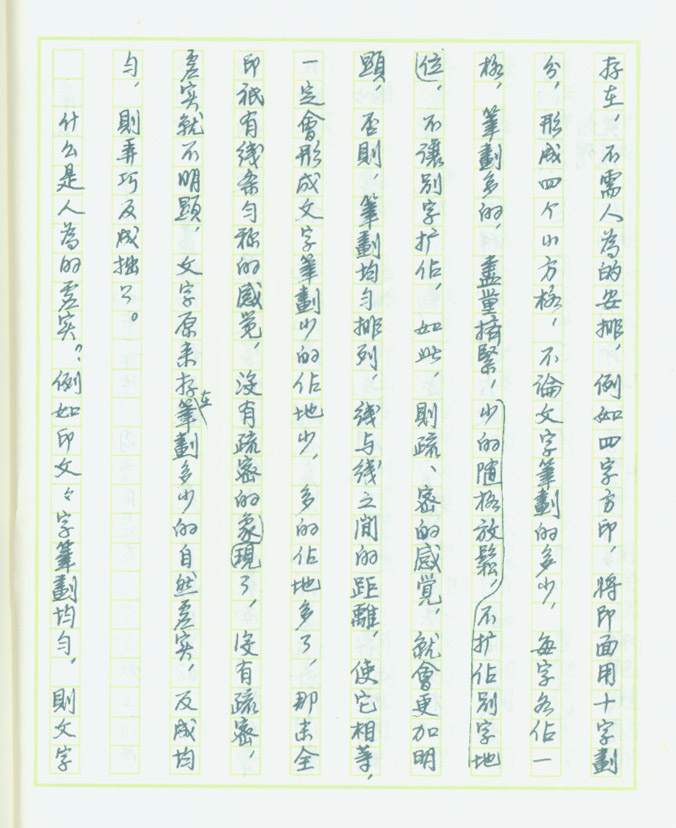 存在，不需人為的安排，例如四字方印，將印面用十字劃
分，形成四个小方格，不論文字筆劃的多少，每字各佔一
格，筆劃多的，盡量擠緊，少的随格放鬆，不扩佔别字地
位，不讓别字扩佔，如此，則疏、密的感觉，就會更加明
顕，否則，筆劃均匀排列，线与线之间的距離，使它相等，
一定會形成文字筆劃少的佔地少，多的佔地多了，那末全
印祇有线条匀称的感觉，沒有疏密的象現了，沒有疏密，
虚实就不明顕，文字原来存在筆劃多少的自然虚实，反成均
匀，則弄巧反成拙了。
什么是人為的虚实？例如印文々字筆劃均匀，則文字